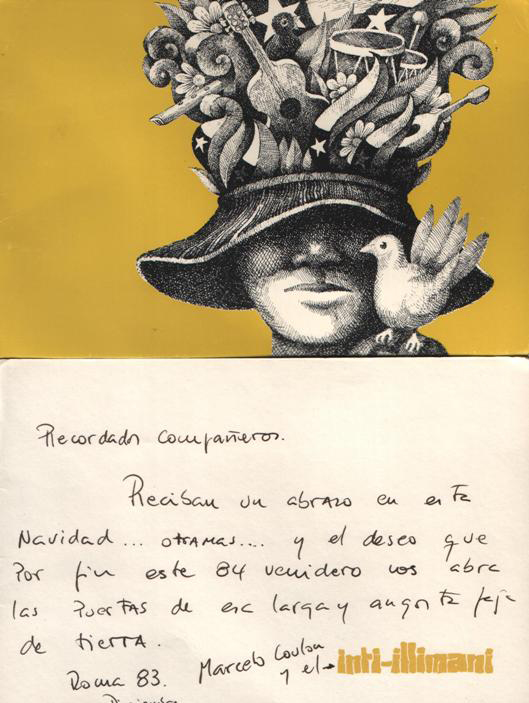 Recordados compañeros.
Reciban un abrazo en esta
Navidad... otra mas.... y el deseo que
Por fin este 84 venidero nos abra
las Puertas de esa larga y angosta faja
de tierra.
Marcelo Coulon
y el → inti-illimani
Roma 83.
Diciembre